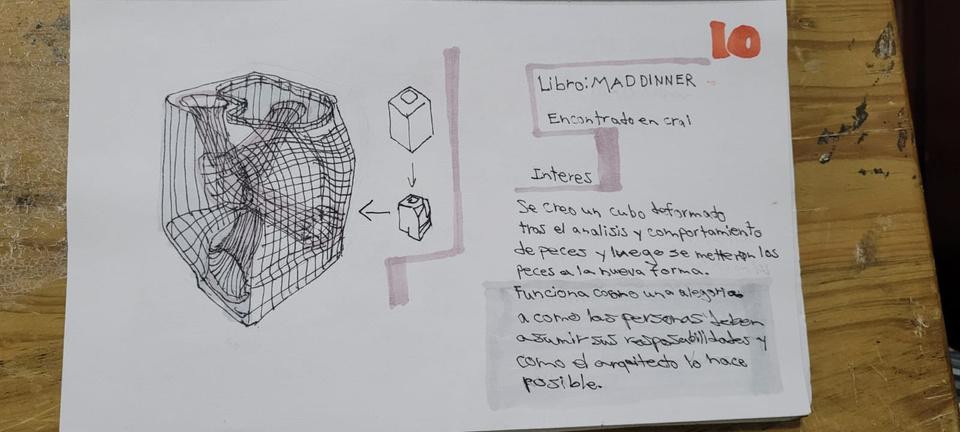 10
Libro: MAD DINNER
Encontrado en cral
Interes
Se creo un cubo deformado
tras el analisis y comportamiento
de peces y luego se metteron los
peces a la nueva forma.
Funciona como una alegoria
a como las personas deben
asumir sus resposabilidades y
como el arqitecto lo hace
posible.